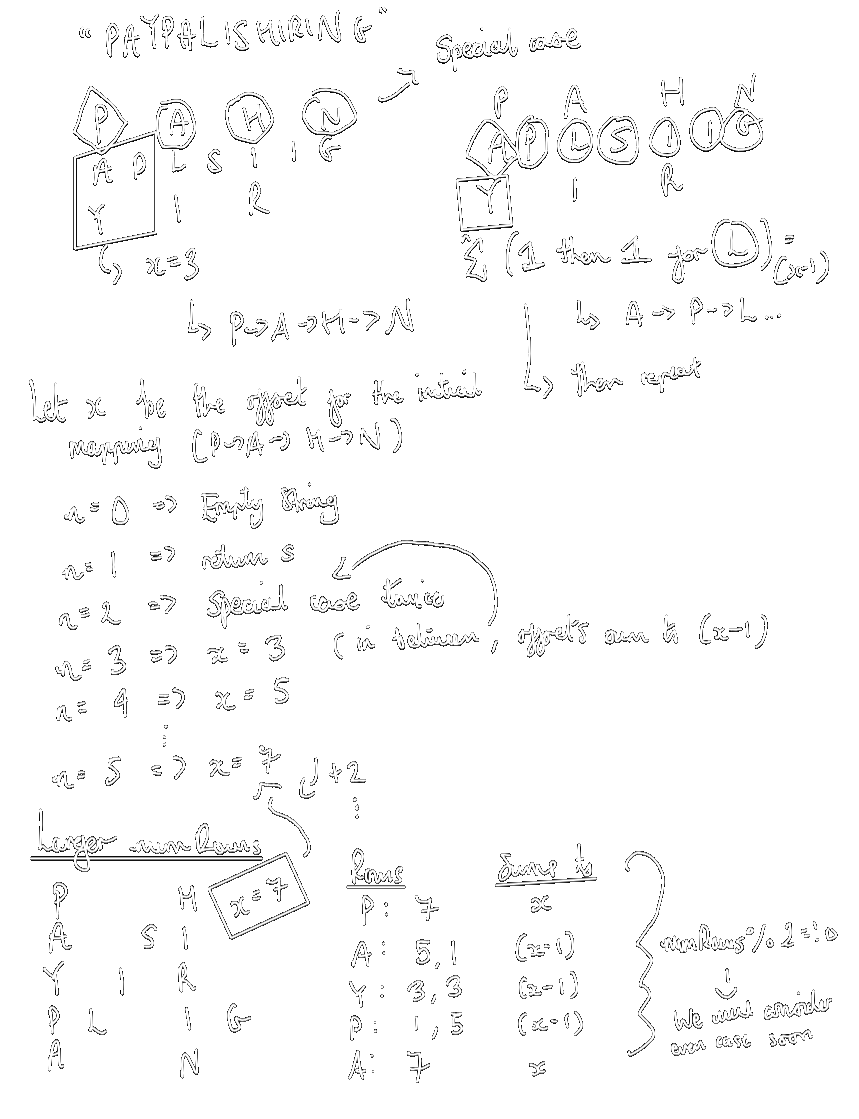 "PAYPALISHIRING"
Special case
P A H N
A P L S I I G
Y I R
↳ x=3
↳ P→A→H→N
P A H N
A P L S I I G
Y I R
Σ (1 then 1 for L) = (x-1)
↳ A → P → L ...
↳ then repeat
Let x be the offset for the initial
mapping (P→A→ H→N)
n= 0 => Empty String
n= 1 => return s
n= 2 => Special case twice
n= 3 => x = 3 (in between, offsets sum to (x-1)
n= 4 => x = 5
⋮
n= 5 => x = 7 +2
⋮
Larger numRows
x=7
P H
A S I
Y I R
P L I G
A N
Rows Jump to
P: 7 x
A: 5, 1 (x-1)
Y: 3, 3 (x-1)
P: 1, 5 (x-1)
A: 7 x
numRows % 2 =!0
We must consider
even case soon